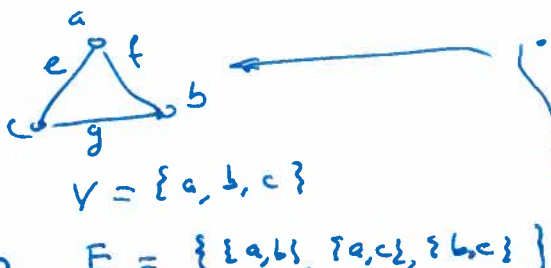 a
e f
c b
g
V = { a, b, c }
E = { {a,b}, {a,c}, {b,c} }